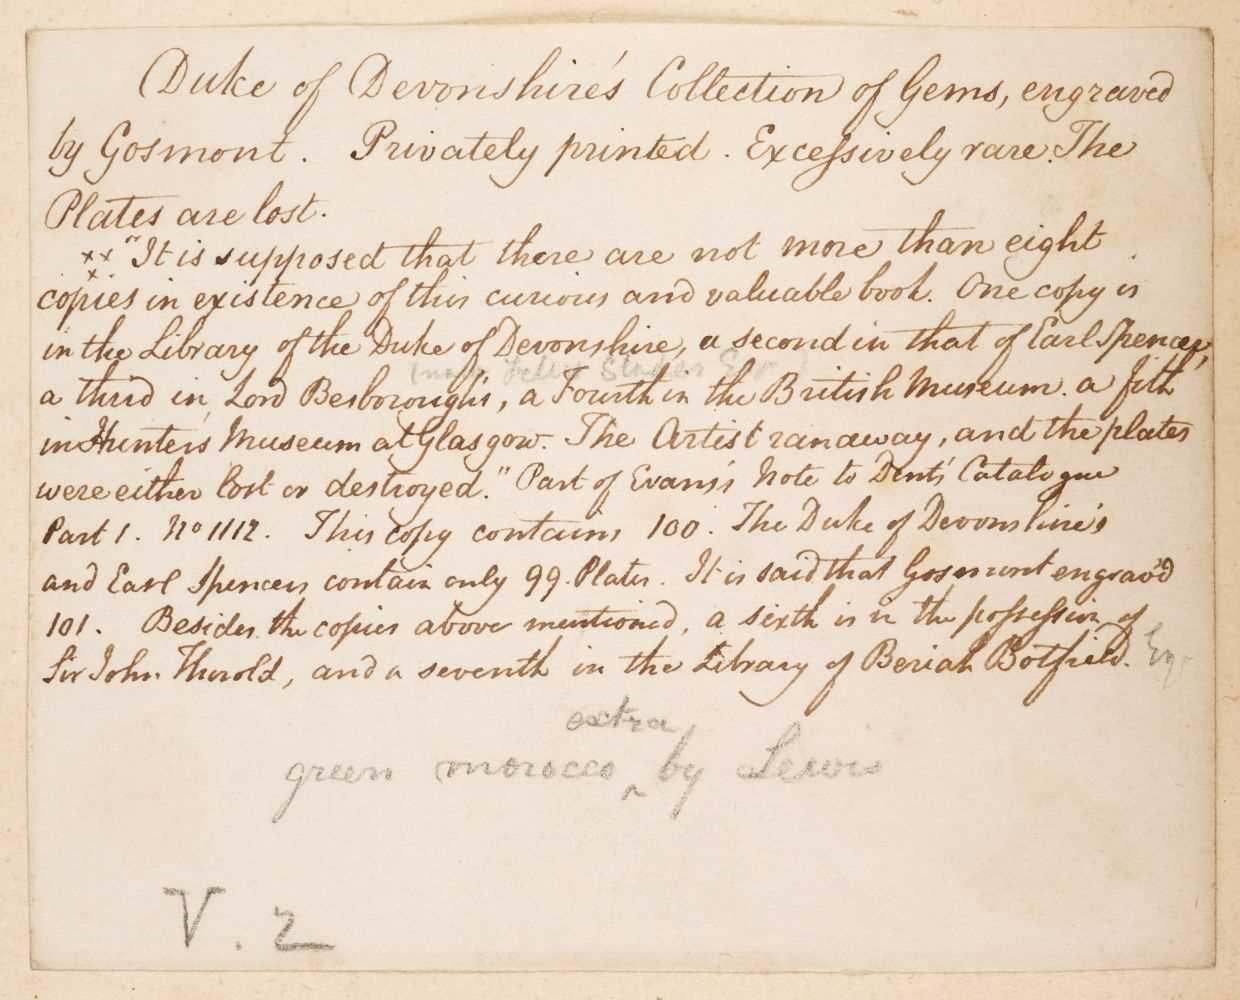 Duke of Devonshire's Collection of Gems, engraved
by Gosmont. Privately printed. Excessively rare. The
Plates are lost.
"It is supposed that there are not more than eight
copies in existence of this curious and valuable book. One copy is
in the Library of the Duke of Devonshire, a second in that of Earl Spencer,
a third in Lord Besborough's, a Fourth in the British Museum. a fifth
in Hunter's Museum at Glasgow. The Artist ran away, and the plates
were either lost or destroyed." Part of Evans's Note to Dent's Catalogue
Part 1. No 1112. This copy contains 100. The Duke of Devonshire's
and Earl Spencers contain only 99. Plates. It is said that Gosmont engrav'd
101. Besides the copies above mentioned, a sixth is in the possession of
Sir John Thorold, and a seventh in the Library of Beriah Botfield. Esq.
extra
green morocco ^ by Lewis
V. 2